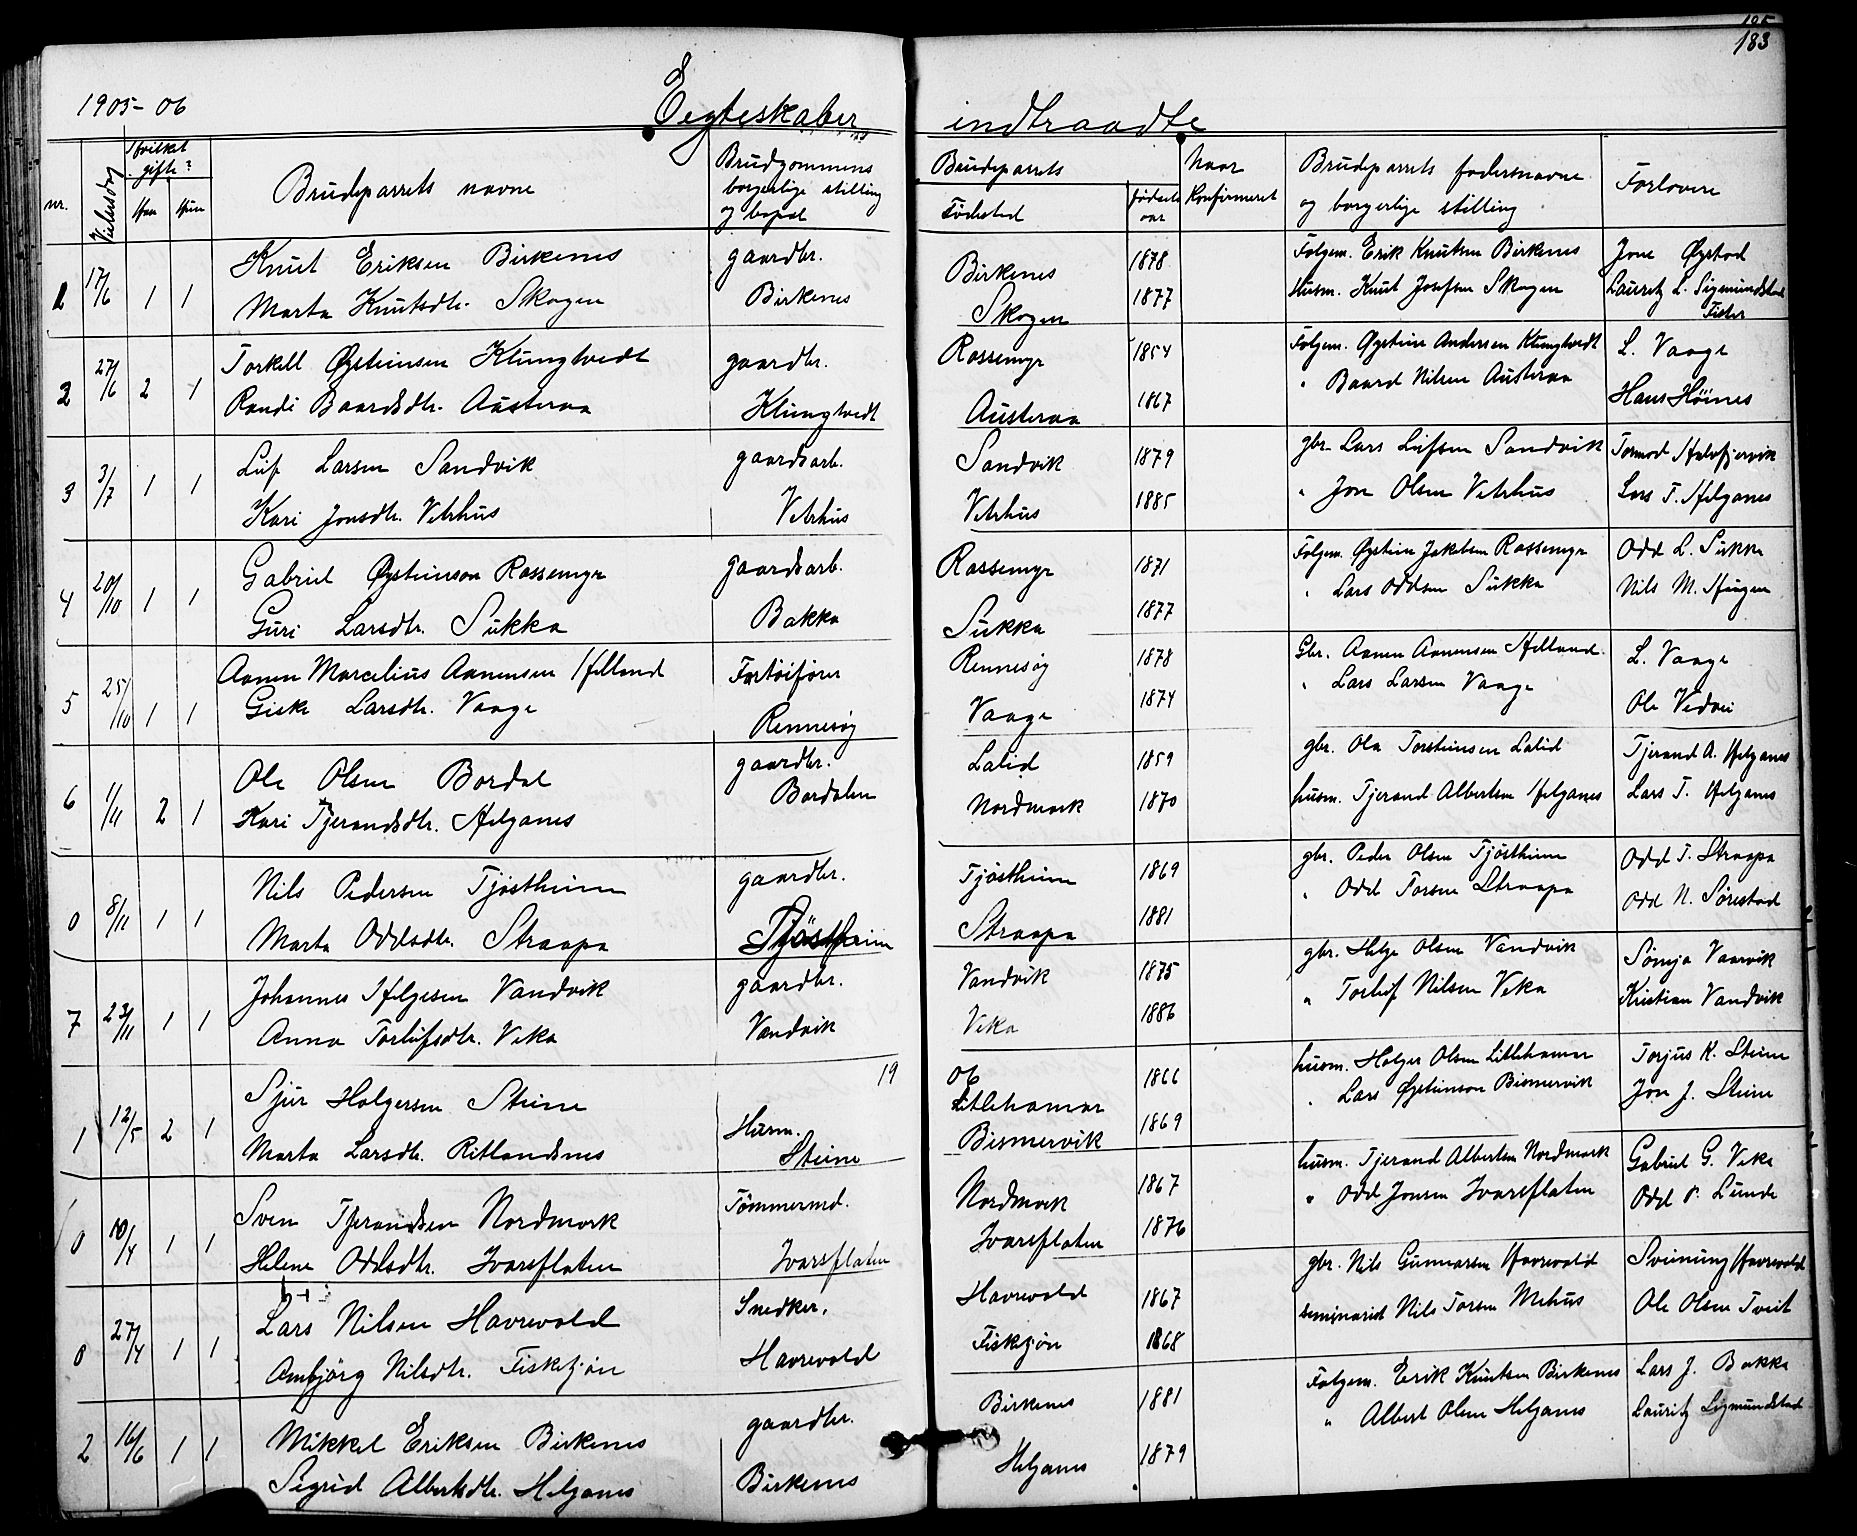 185
183
1905-06
Egteskaber indtraadte
nr. Vielsesdag Hvilket gifte? Han Hun
Brudeparrets navne
Brudgommens borgerlige stilling og bopæl
Brudeparrets Fødested fødselsaar
Naar Konfirmeret
Brudeparrets fædres navne og borgerlige stilling
Forlovere
1 17/6 1 1 Knut Eriksen Birkenes gaardbr. Birkenes 1878 Følgem. Erik Knutsen Birkenes Jone Øystad
Marta Knutsdtr. Skogen Birkenes Skogen 1877 Husm. Knut Josefsen Skogen Lauritz L. Sigmundstad
Fister
2 27/6 2 1 Torkell Øysteinsen Klungtvedt gaardbr. Rossemyr 1854 Følgem. Øystein Andersen Klungtvedt L. Vaage
Randi Baardsdtr. Austeraa Klungtvedt Austeraa 1867 " Baard Nilsen Austeraa Hans Höines
3 3/7 1 1 Leif Larsen Sandvik gaardsarb. Sandvik 1879 gbr. Lars Leifsen Sandvik Tormod Halvfjervik
Kari Jonsdtr. Vetrhus Vetrhus Vetrhus 1885 " Jon Olsen Vetrhus Lars T. Helganes
4 20/10 1 1 Gabriel Øysteinson Rossemyr gaardsarb. Rossemyr 1871 Følgem. Øystein Jakobsen Rossemyr Odd L. Sukka
Guri Larsdtr. Sukka Bakka Sukka 1877 " Lars Oddsen Sukka Nils M. Haugen
5 25/10 1 1 Aanen Marcelius Aanensen Helland Fartöifører Rennesøy 1878 Gbr. Aanen Aanensen Helland. L. Vaage
Giske Larsdtr. Vaage Rennesøy Vaage 1874 " Lars Larsen Vaage Ole Vedvei
6 1/11 2 1 Ole Olsen Bordal gaardbr. Lalid 1859 gbr. Ola Torsteinsen Lalid Tjerand A. Helganes
Kari Tjerandsdtr. Helganes Bordalen Nordmork 1870 husm. Tjerand Albertsen Helganes Lars T. Helganes
0 8/11 1 1 Nils Pedersen Tjöstheim gaardbr. Tjöstheim 1869 gbr. Peder Olsen Tjöstheim Odd T. Straapa
Marta Oddsdtr. Straapa Tjöstheim Straapa 1881 " Odd Torsen Straapa Odd N. Sørestad
7 23/11 1 1 Johannes Helgesen Vandvik gaardbr. Vandvik 1875 gbr. Helge Olsen Vandvik Vaarvik
Anna Torleifsdtr. Veka Vandvik Veka 1886 " Torleif Nilsen Veka Kristian Vandvik
19 06
1 12/5 2 1 Sjur Holgersen Steine Husm. Litlehamar 1866 husm. Holger Olsen Litlehamar Torjus K. Steine
Marta Larsdtr. Ritlandsnes Steine Bismervik 1869 " Lars Øysteinson Bismervik Jon J. Steine
0 10/4 1 1 Sven Tjerandsen Nordmork Tömmermd. Nordmork 1867 husm. Tjerand Albertsen Nordmork Gabriel G. Veka
Helene Oddsdtr. Ivarsflaten Ivarsflaten Ivarsflaten 1876 " Odd Jonsen Ivarsflaten Odd P. Lunde
0 27/4 1 1 Lars Nilsen Havrevold Snedker. Havrevold 1867 gbr. Nils Gunnarsen Havrevold Sveinung Havrevold
Ambjörg Nilsdtr. Fisketjön Havrevold Fisketjön 1868 seminarist Nils Torsen Mehus Ole Olsen Tveit
2 16/6 1 1 Mikkel Eriksen Birkenes gaardbr. Birkenes 1881 Følgem. Erik Knutsen Birkenes Lars J. Bakka
Sigrid Albertsdtr. Helganes Birkenes Helganes 1879 " Albert Olsen Helganes Lauritz Sigmundstad